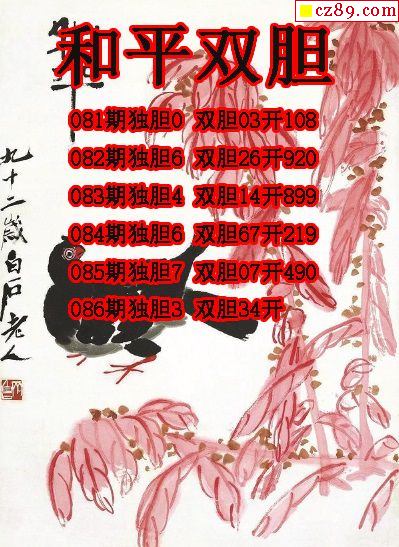 cz89.com
和平
和平双胆
081期独胆0 双胆03开108
082期独胆6 双胆26开920
083期独胆4 双胆14开899
084期独胆6 双胆67开219
085期独胆7 双胆07开490
086期独胆3 双胆34开
九十二岁白石老人